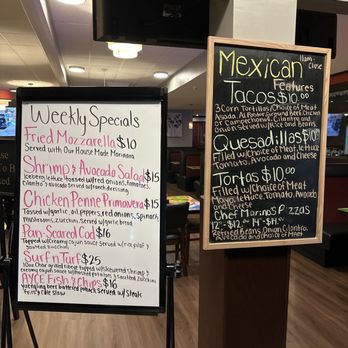 Weekly Specials
Fried Mozzarella $10
Served with Our House Made Marinara
Shrimp & Avocado Salad $15
Iceberg lettuce tossed w/ red onions, tomatoes,
cilantro & avocado served w/ ranch dressing
Chicken Penne Primavera $15
Tossed w/ garlic, oil, peppers, red onions, spinach
mushrooms, zucchini, served w/ garlic bread
Pan-Seared Cod $16
Topped w/ creamy cajun sauce served w/ rice pilaf &
sauteed zucchini
Surf n Turf $25
skewered shrimp &
creamy cajun sauce w/
AYCE Fish & Chips $16
Yuengling beer battered
fries & cole slaw
Mexican
11am -
Close
Features
Tacos $10.00
3 Corn Tortillas/Choice of Meat
Asada, Al Pastor, Ground Beef, Chicken
or Campechanos, Cilantro and
Onion Served w/ Rice and Beans
Quesadillas $10.00
Filled w/ choice of Meat, lettuce
Tomato, Avocado and Cheese
Tortas $10.00
Filled w/ choice of Meat
Mayo, lettuce, Tomato, Avocado,
and Cheese
Chef Marinos P zzas
12"-$12 ~ 14"-$14.00
Beans, Onion, Cilantro,
Avocado and choice of Meat